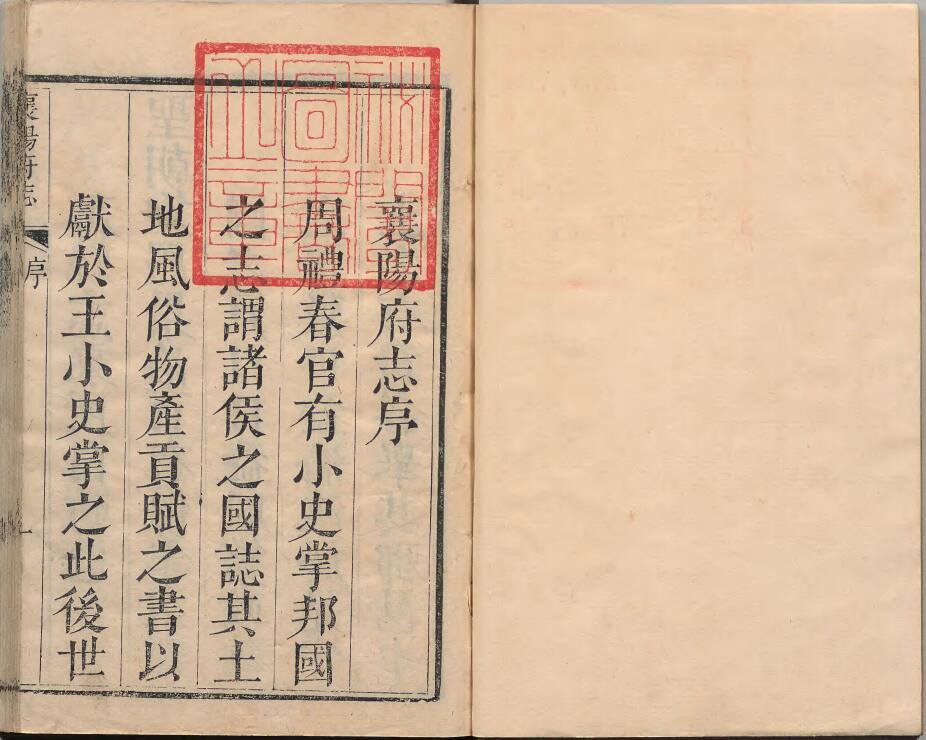 襄陽府志序
周禮春官有小史掌邦國
之志謂諸侯之國誌其土
地風俗物產貢賦之書以
獻於王小史掌之此後世
襄陽府志
序
一